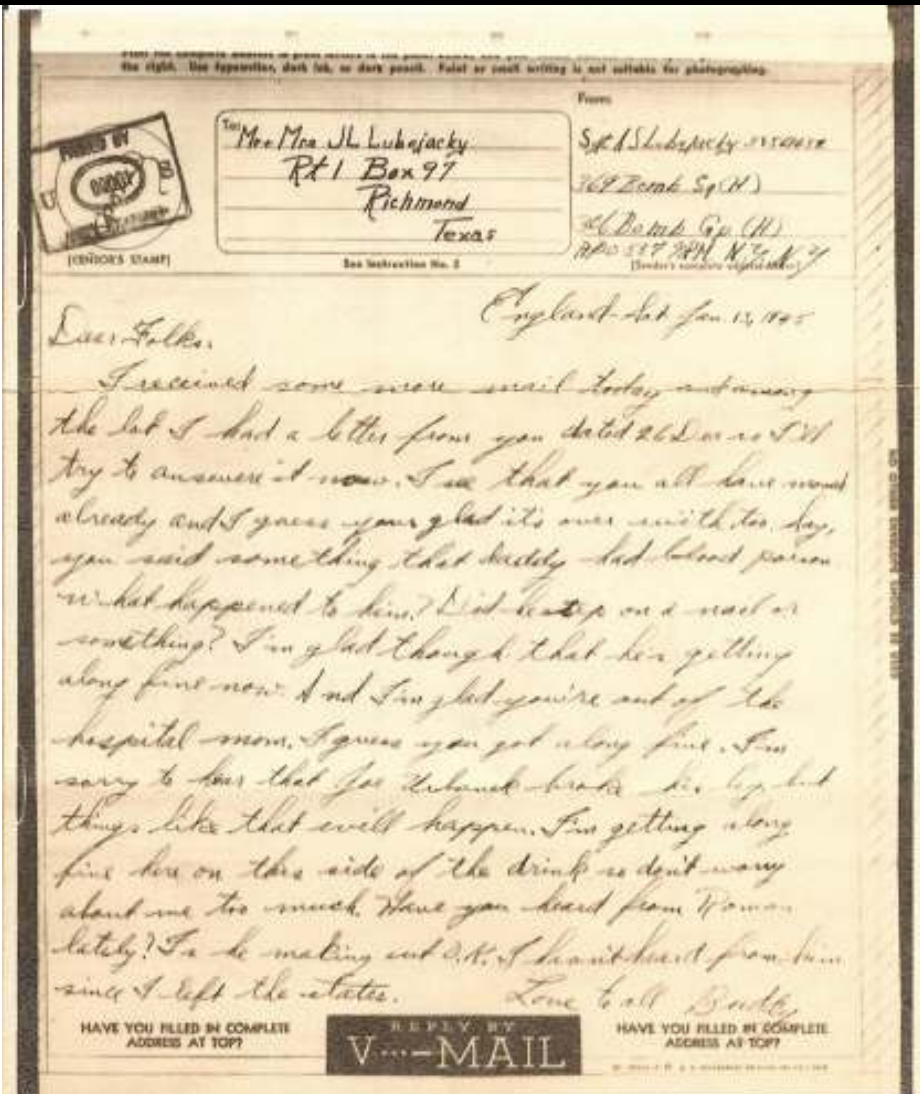 the right. Use typewriter, dark ink, or dark pencil. Faint or small writing is not suitable for photographing.
From:
PASSED BY
U S
[CENSOR'S STAMP]
To:
Mr & Mrs JL Lubojacky
Rt 1 Box 97
Richmond
Texas
See Instruction No. 2
Sgt A S Lubojacky
369 Bomb Sq (H)
306 Bomb Gp (H)
APO 557 %PM N.Y. N.Y
[Sender's complete address above]
England Sat Jan. 13, 1945
Dear Folks.
I received some more mail today and among
the lot I had a letter from you dated 26 Dec so I'll
try to answere it now. I see that you all have moved
already and I guess your glad it's over with too. Say,
you said something that daddy had blood poison
what happened to him? Did he step on a nail or
something? I'm glad though that he's getting
along fine now. And I'm glad you're out of the
hospital mom. I guess you got along fine. I'm
sorry to hear that Joe Urbanek broke his leg but
things like that will happen. I'm getting along
fine here on this side of the drink so don't worry
about me too much. Have you heard from Roman
lately? Is he making out O.K. I havn't heard from him
since I left the states.
Love to all Buddy
HAVE YOU FILLED IN COMPLETE
ADDRESS AT TOP?
REPLY BY
V···—MAIL
HAVE YOU FILLED IN COMPLETE
ADDRESS AT TOP?